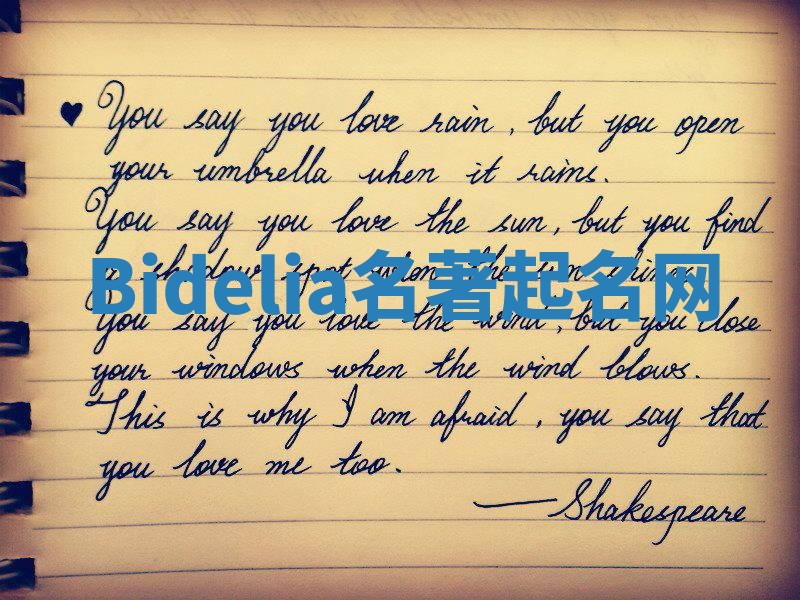 ♥ You say you love rain, but you open
your umbrella when it rains.
You say you love the sun, but you find
a shadow spot when the sun shines.
Bidelia名著起名网
You say you love the wind, but you close
your windows when the wind blows.
This is why I am afraid, you say that
you love me too.
—Shakespeare